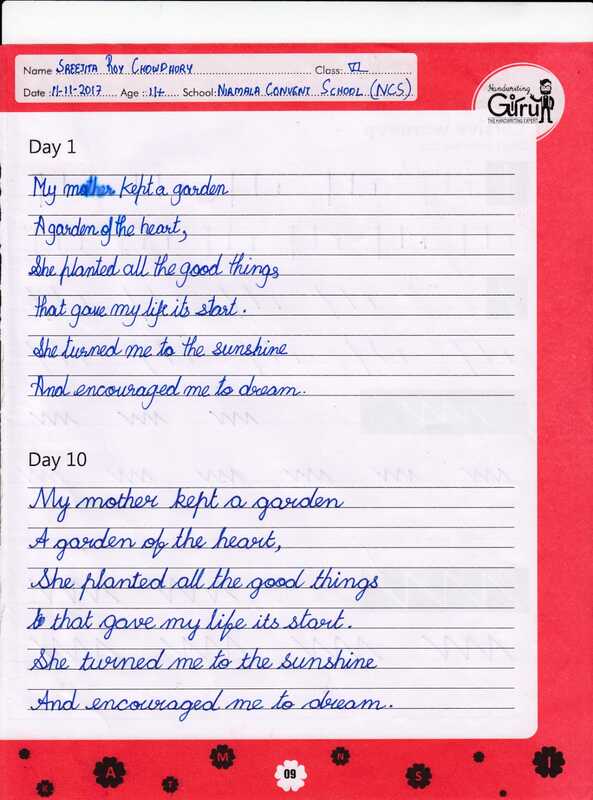 Name SREEJITA ROY CHOWDHORY Class: VI
Date: 11-11-2017 Age: 11+ School: NIRMALA CONVENT SCHOOL (NCS)
Handwriting
Guru
THE HANDWRITING EXPERT
Day 1
My mother kept a garden
A garden of the heart,
She planted all the good things
that gave my life its start.
She turned me to the sunshine
And encouraged me to dream.
Day 10
My mother kept a garden
A garden of the heart,
She planted all the good things
that gave my life its start.
She turned me to the sunshine
And encouraged me to dream.
K A T M 09 N S I